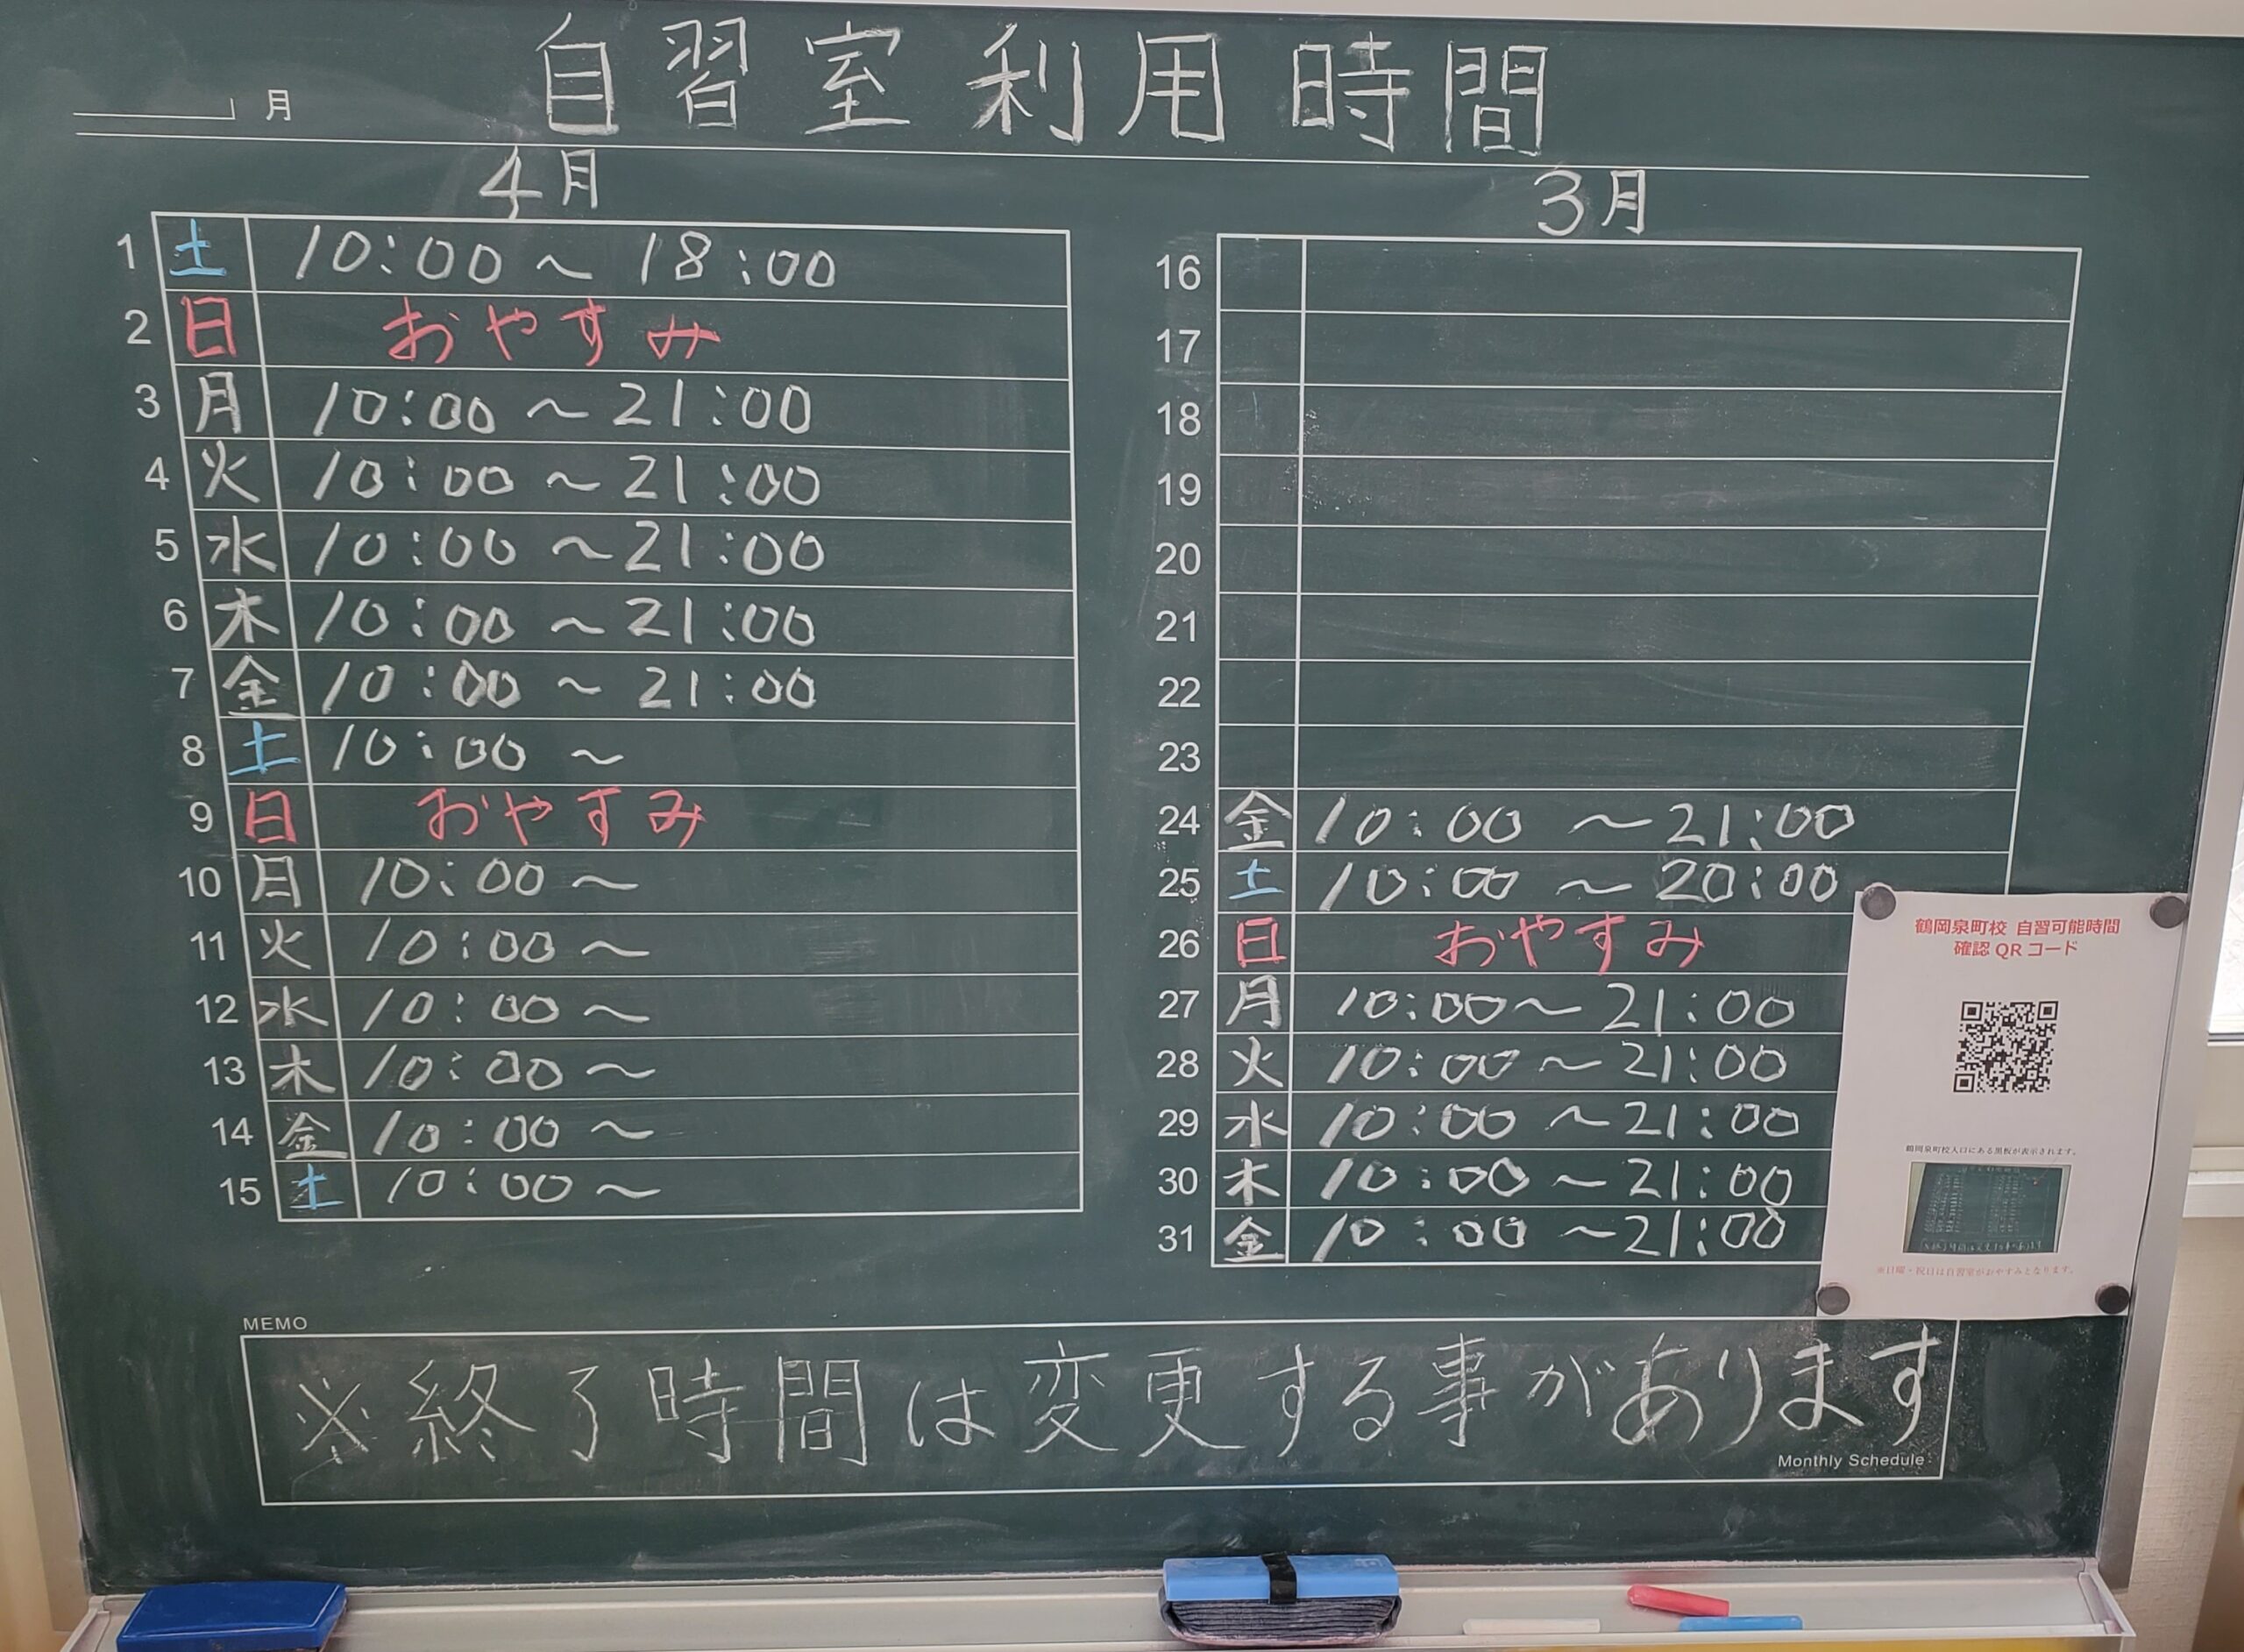 自習室利用時間
月
4月
1 土 10:00 ~ 18:00
2 日 おやすみ
3 月 10:00 ~ 21:00
4 火 10:00 ~ 21:00
5 水 10:00 ~ 21:00
6 木 10:00 ~ 21:00
7 金 10:00 ~ 21:00
8 土 10:00 ~
9 日 おやすみ
10 月 10:00 ~
11 火 10:00 ~
12 水 10:00 ~
13 木 10:00 ~
14 金 10:00 ~
15 土 10:00 ~
3月
16
17
18
19
20
21
22
23
24 金 10:00 ~ 21:00
25 土 10:00 ~ 20:00
26 日 おやすみ
27 月 10:00 ~ 21:00
28 火 10:00 ~ 21:00
29 水 10:00 ~ 21:00
30 木 10:00 ~ 21:00
31 金 10:00 ~ 21:00
鶴岡泉町校 自習可能時間
確認 QR コード
鶴岡泉町校入口にある黒板が表示されます。
※日曜・祝日は自習室がおやすみとなります。
MEMO
※終了時間は変更する事があります
Monthly Schedule